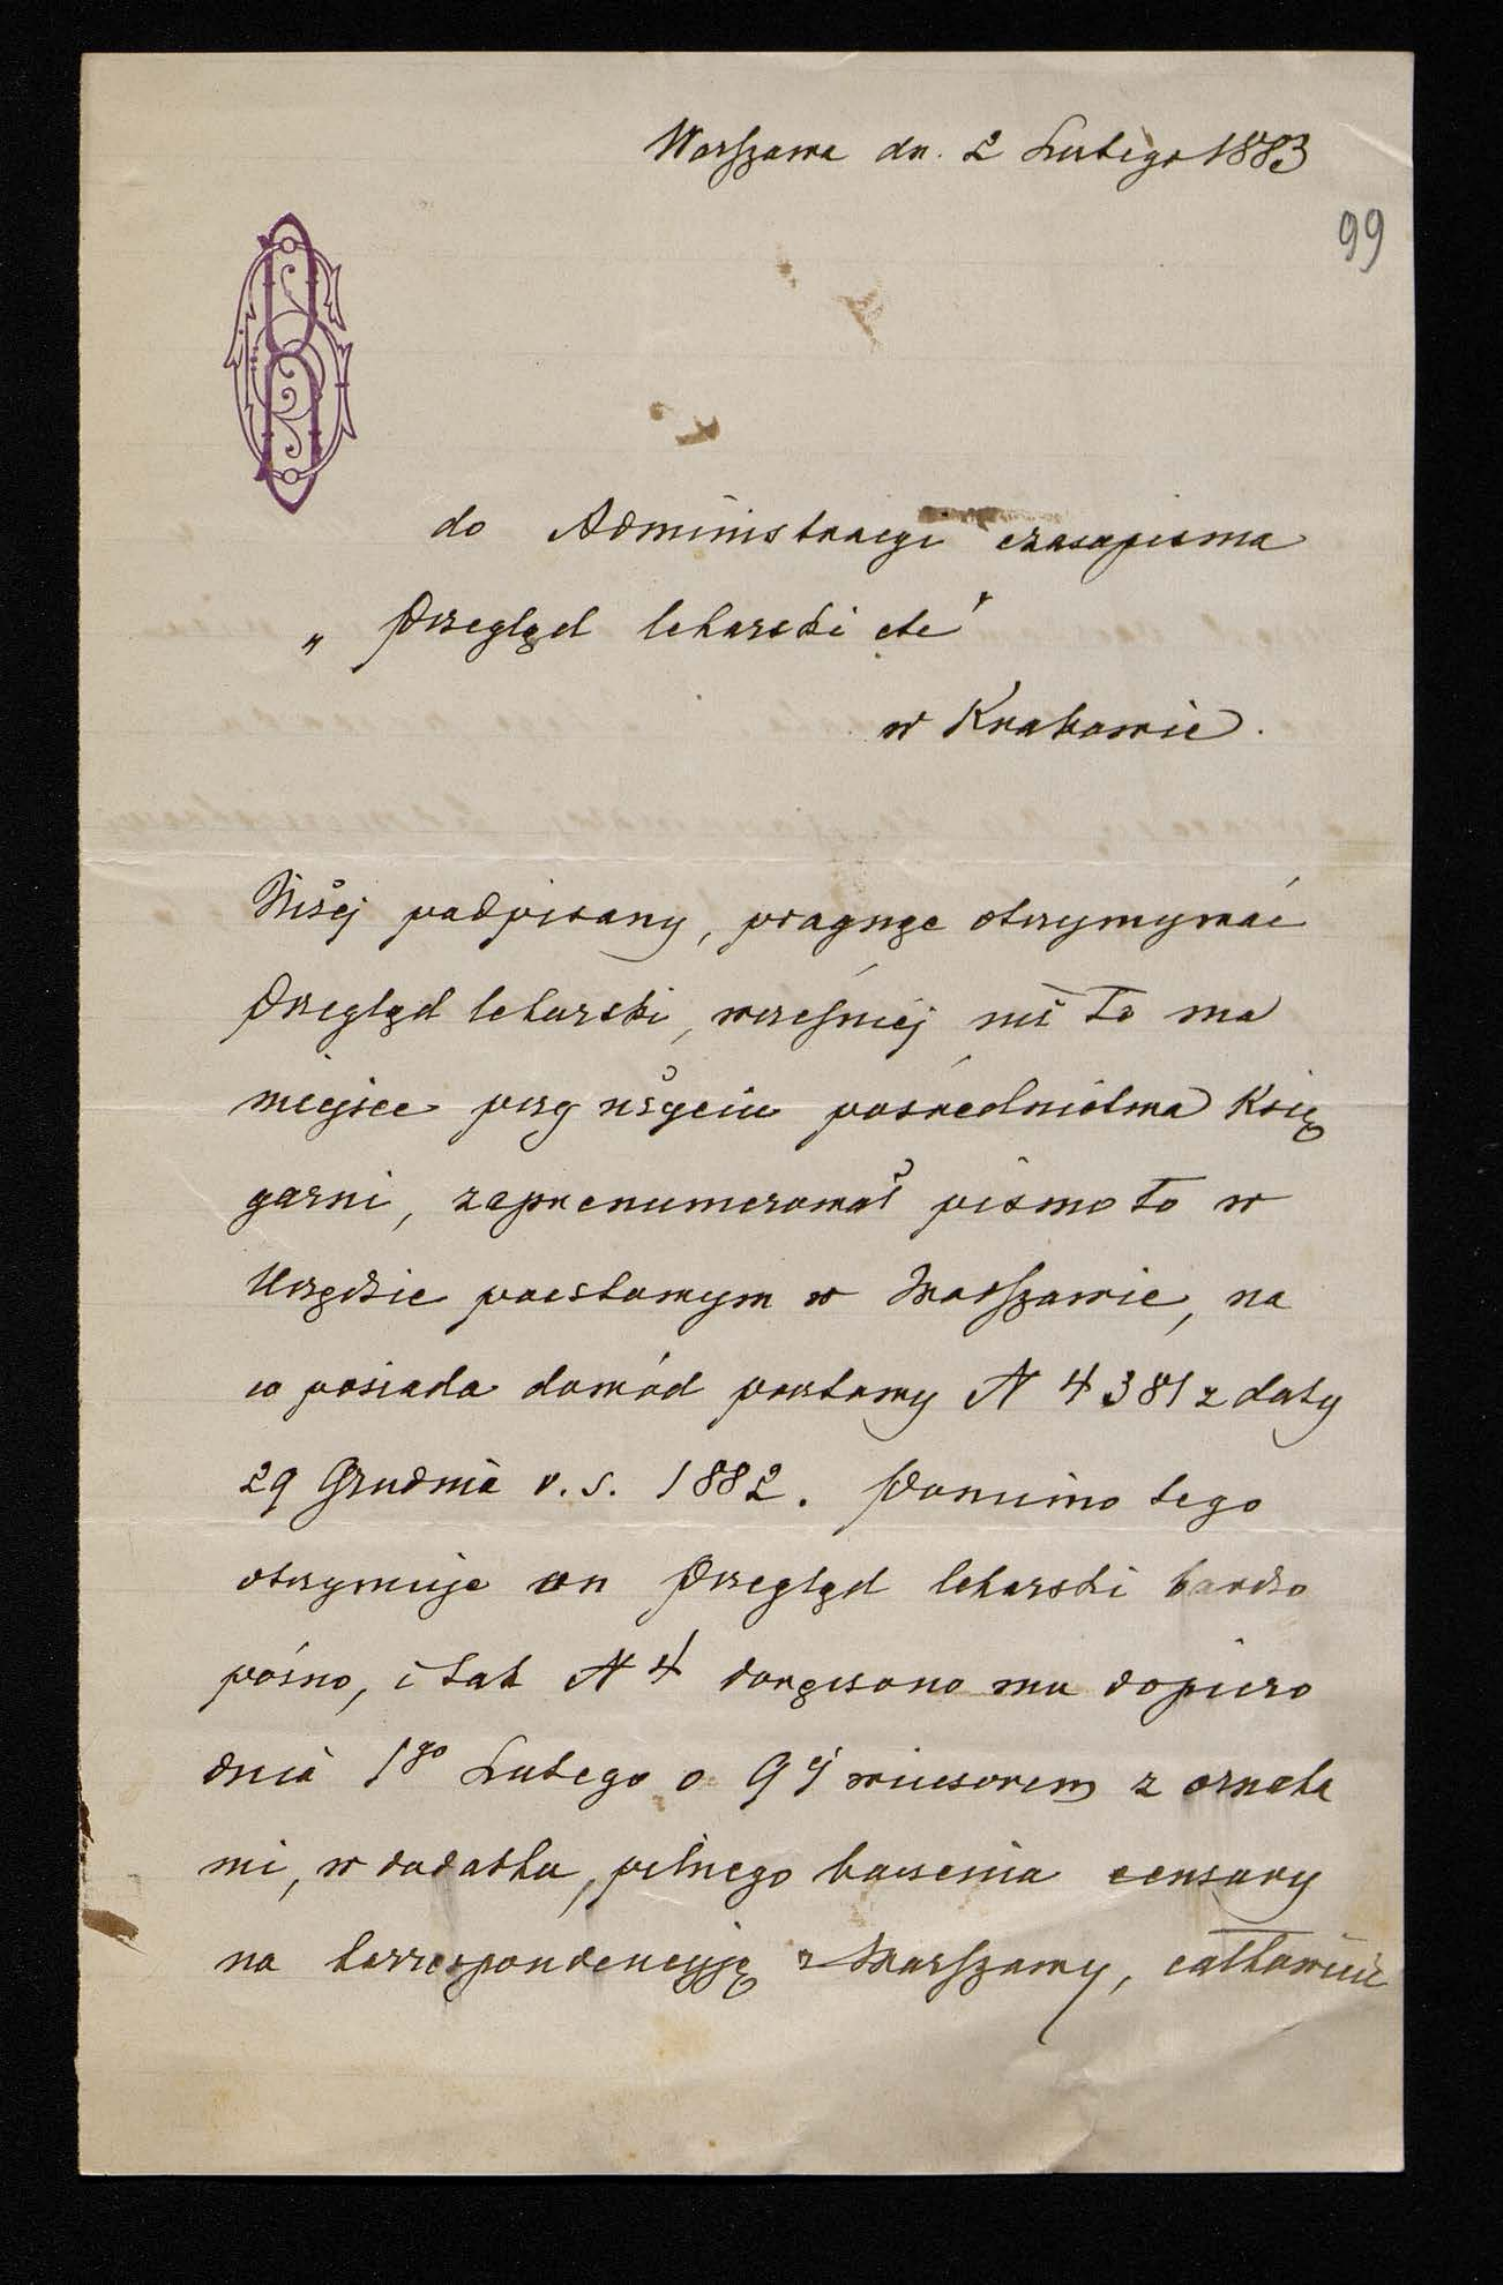 Warszawa dn. 2 Lutego 1883
99
do Administracyi czasopisma
„Przegląd lekarski etc"
w Krakowie.
Niżej podpisany, pragnąc otrzymywać
Przegląd lekarski, wcześniéj niż to ma
miejsce przy użyciu pośrednictwa Księ
garni, zaprenumerował pismo to w
Urzędzie pocztowym w Warszawie, na
co posiada dowód pocztowy N 4381 z daty
29 Grudnia v. s. 1882. Pomimo tego
otrzymuje on Przegląd lekarski bardzo
póżno, i tak N 4 doręczono mu dopiero
dnia 1go Lutego o 9éj wieczorem z
mi, w dodatku, pilnego baczenia cenzury
na korrespondencyję z Warszawy, całkowicie